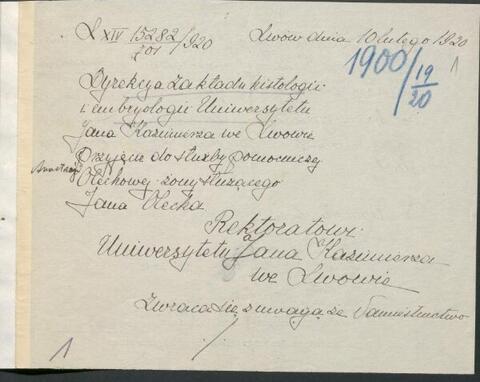 L XIV 15282/701/920 Lwów dnia 10 lutego 1920
1900/19/20 1
Dyrekcja Zakładu histologii
i embryologii Uniwersytetu
Jana Kazimierza we Lwowie
Przyjęcie do służby pomocniczej
Oleckowej żony służącego
Jana Olecka
Rektoratowi
Uniwersytetu Jana Kazimierza
we Lwowie
Zwraca się z uwagą że Namiestnictwo
./.
1